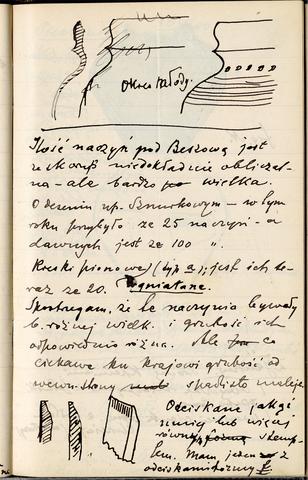 Okres młody.
Ilość naczyń pod Beszową jest
ze skorup niedokładnie obliczal-
na - ale bardzo wielka.
O deseniu np. sznurkowym - w tym
roku przybyło ze 25 naczyń - a
dawnych jest ze 100 " .
Kreski pionowe) (typ a); jest ich te-
raz ze 20. Wgniatane.
Spostrzegam, że te naczynia bywały
b. różnej wielk. i grubość ich
odpowiednio różna. Ale co
ciekawe ku krajowi grubość od
wewn. strony spadzisto maleje.
Odciskane jakgi
mniej lub więcej
równą stemp-
lem. Mam jeden z
odciskami